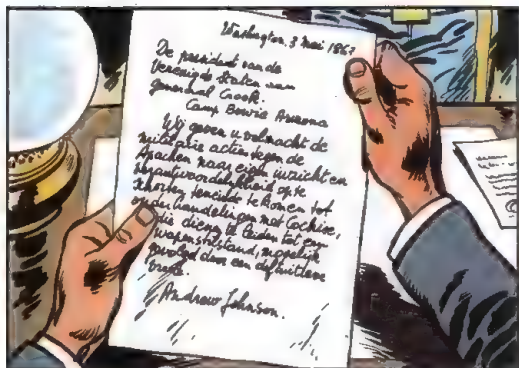 Washington, 3 mei 1867
De president van de
Verenigde Staten aan
generaal Crook.
Camp Bowie Arizona
Wij geven u volmacht de
militaire acties tegen de
Apachen naar eigen inzicht en
verantwoordelijkheid op te
schorten teneinde te komen tot
onderhandelingen met Cochise,
die dienen te leiden tot een
wapenstilstand, mogelijk
gevolgd door een definitieve
vrede.
Andrew Johnson.